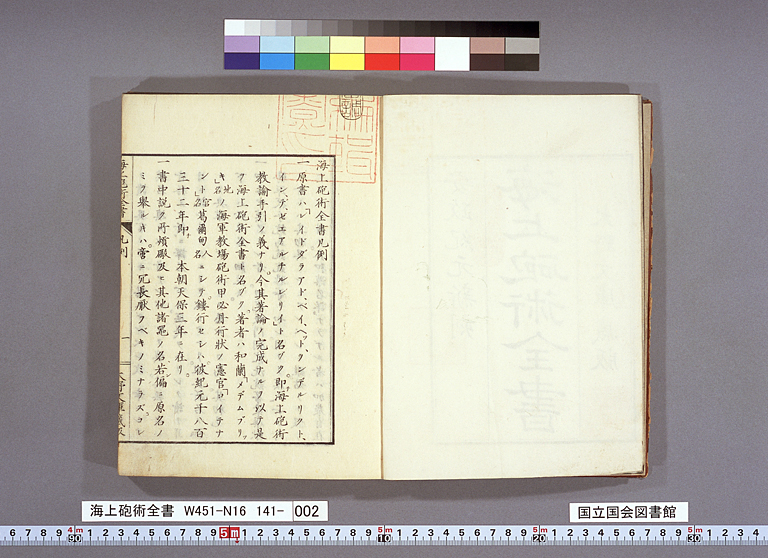 海上砲術全書凡例
一原書ハ「レイドダラアド、ベイ、ヘット、ヲンデルリクト、
イン、デ、ゼエアルチルレリイ」ト名ヅク。即海上砲術
教諭手引ノ義ナリ。今其著論ノ完成ナルヲ以テ是
ヲ海上砲術全書ト名ヅク著者ハ和蘭「メデムブリッ
キ」地名ノ海軍教場砲術甲必丹行状ノ憲官「コイテナ
ント」官名葛爾甸人名ニシテ鏤行セシハ彼紀元千八百
三十二年即本朝天保三年ニ在リ。
一書中説ク所煩礟及ビ其他諸
名若偏ニ原名ノ
ミヲ挙ルキハ
冗長厭フベキノミナラズコレ
海上砲術全書
凡例
一
海上砲術全書 W451-N16 141- 002
国立国会図書館